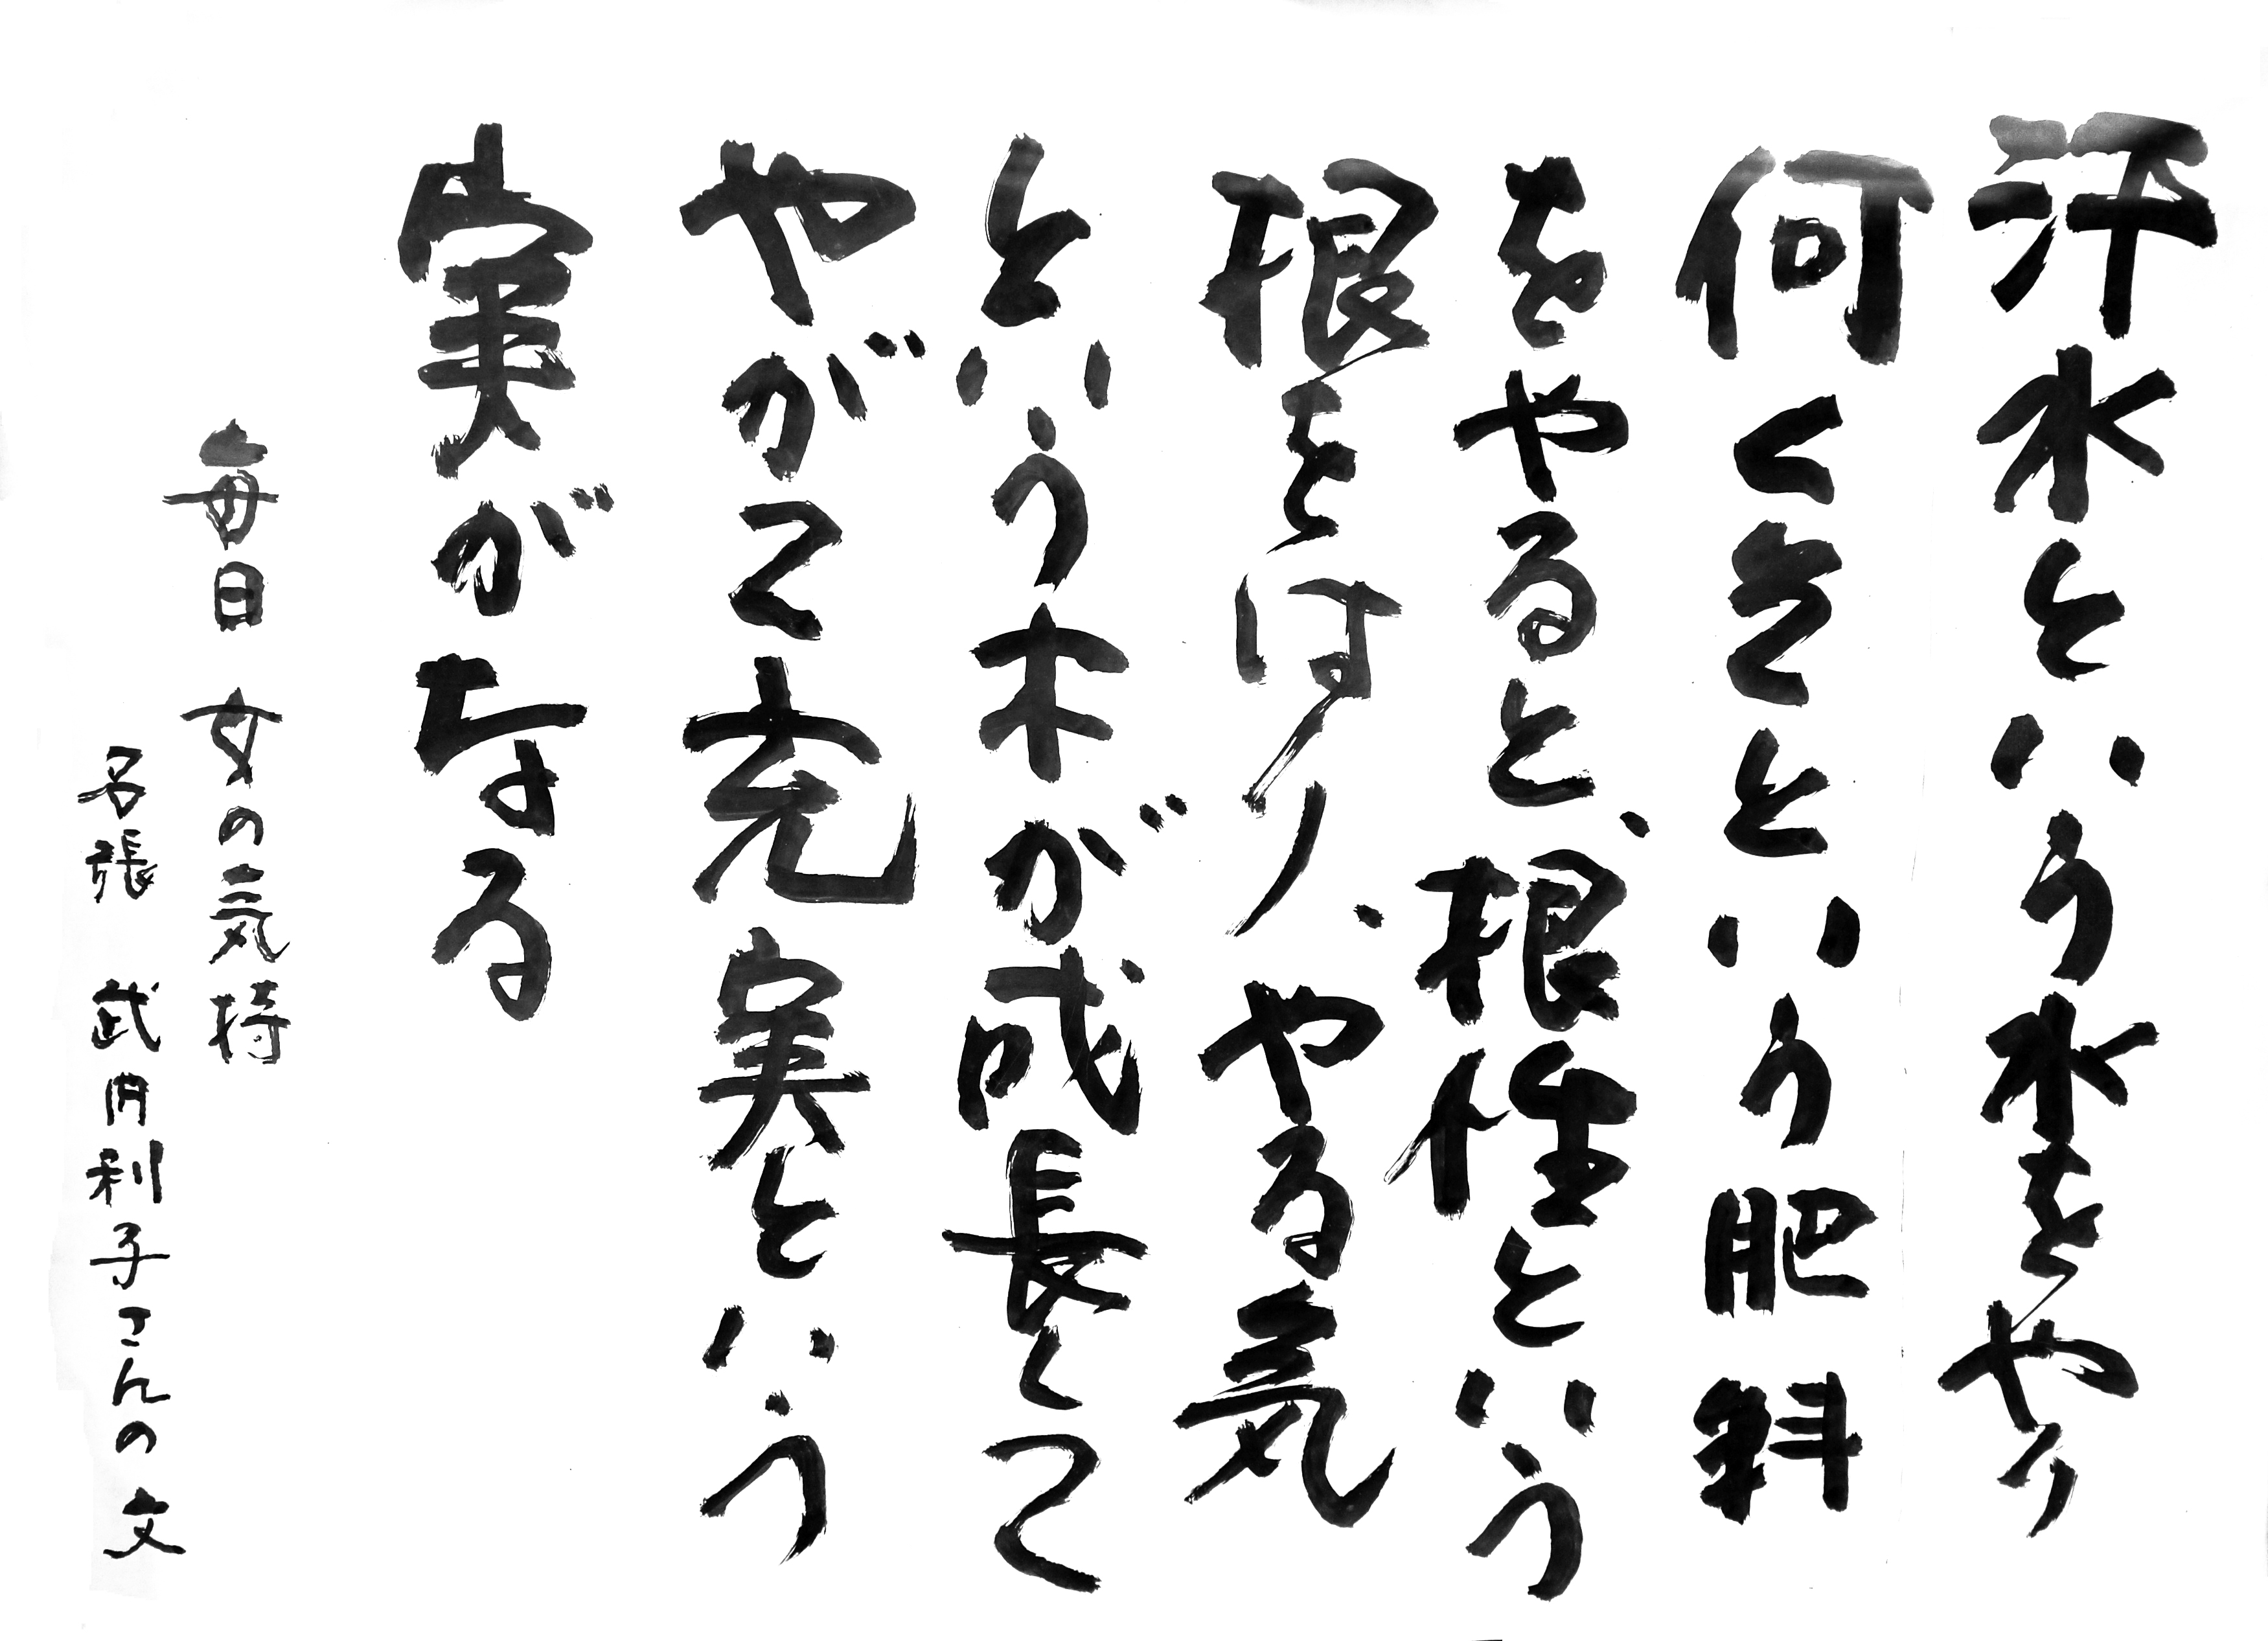 汗水という水をやり
何くそという肥料
をやると、根性という
根をはり、やる気
という木が成長して
やがて充実という
実がなる
毎日 女の気持
名張 武内利子さんの文